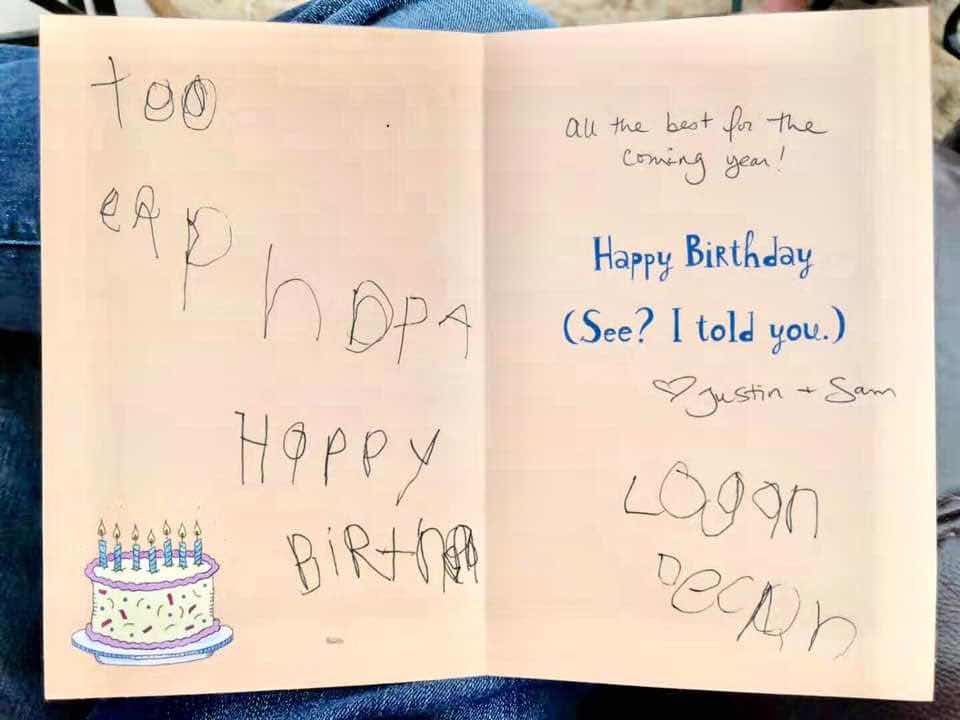 too
eAp hDPA
HAppy
BiRth
all the best for the
coming year!
Happy Birthday
(See? I told you.)
♡ Justin + Sam
Logan
Decan